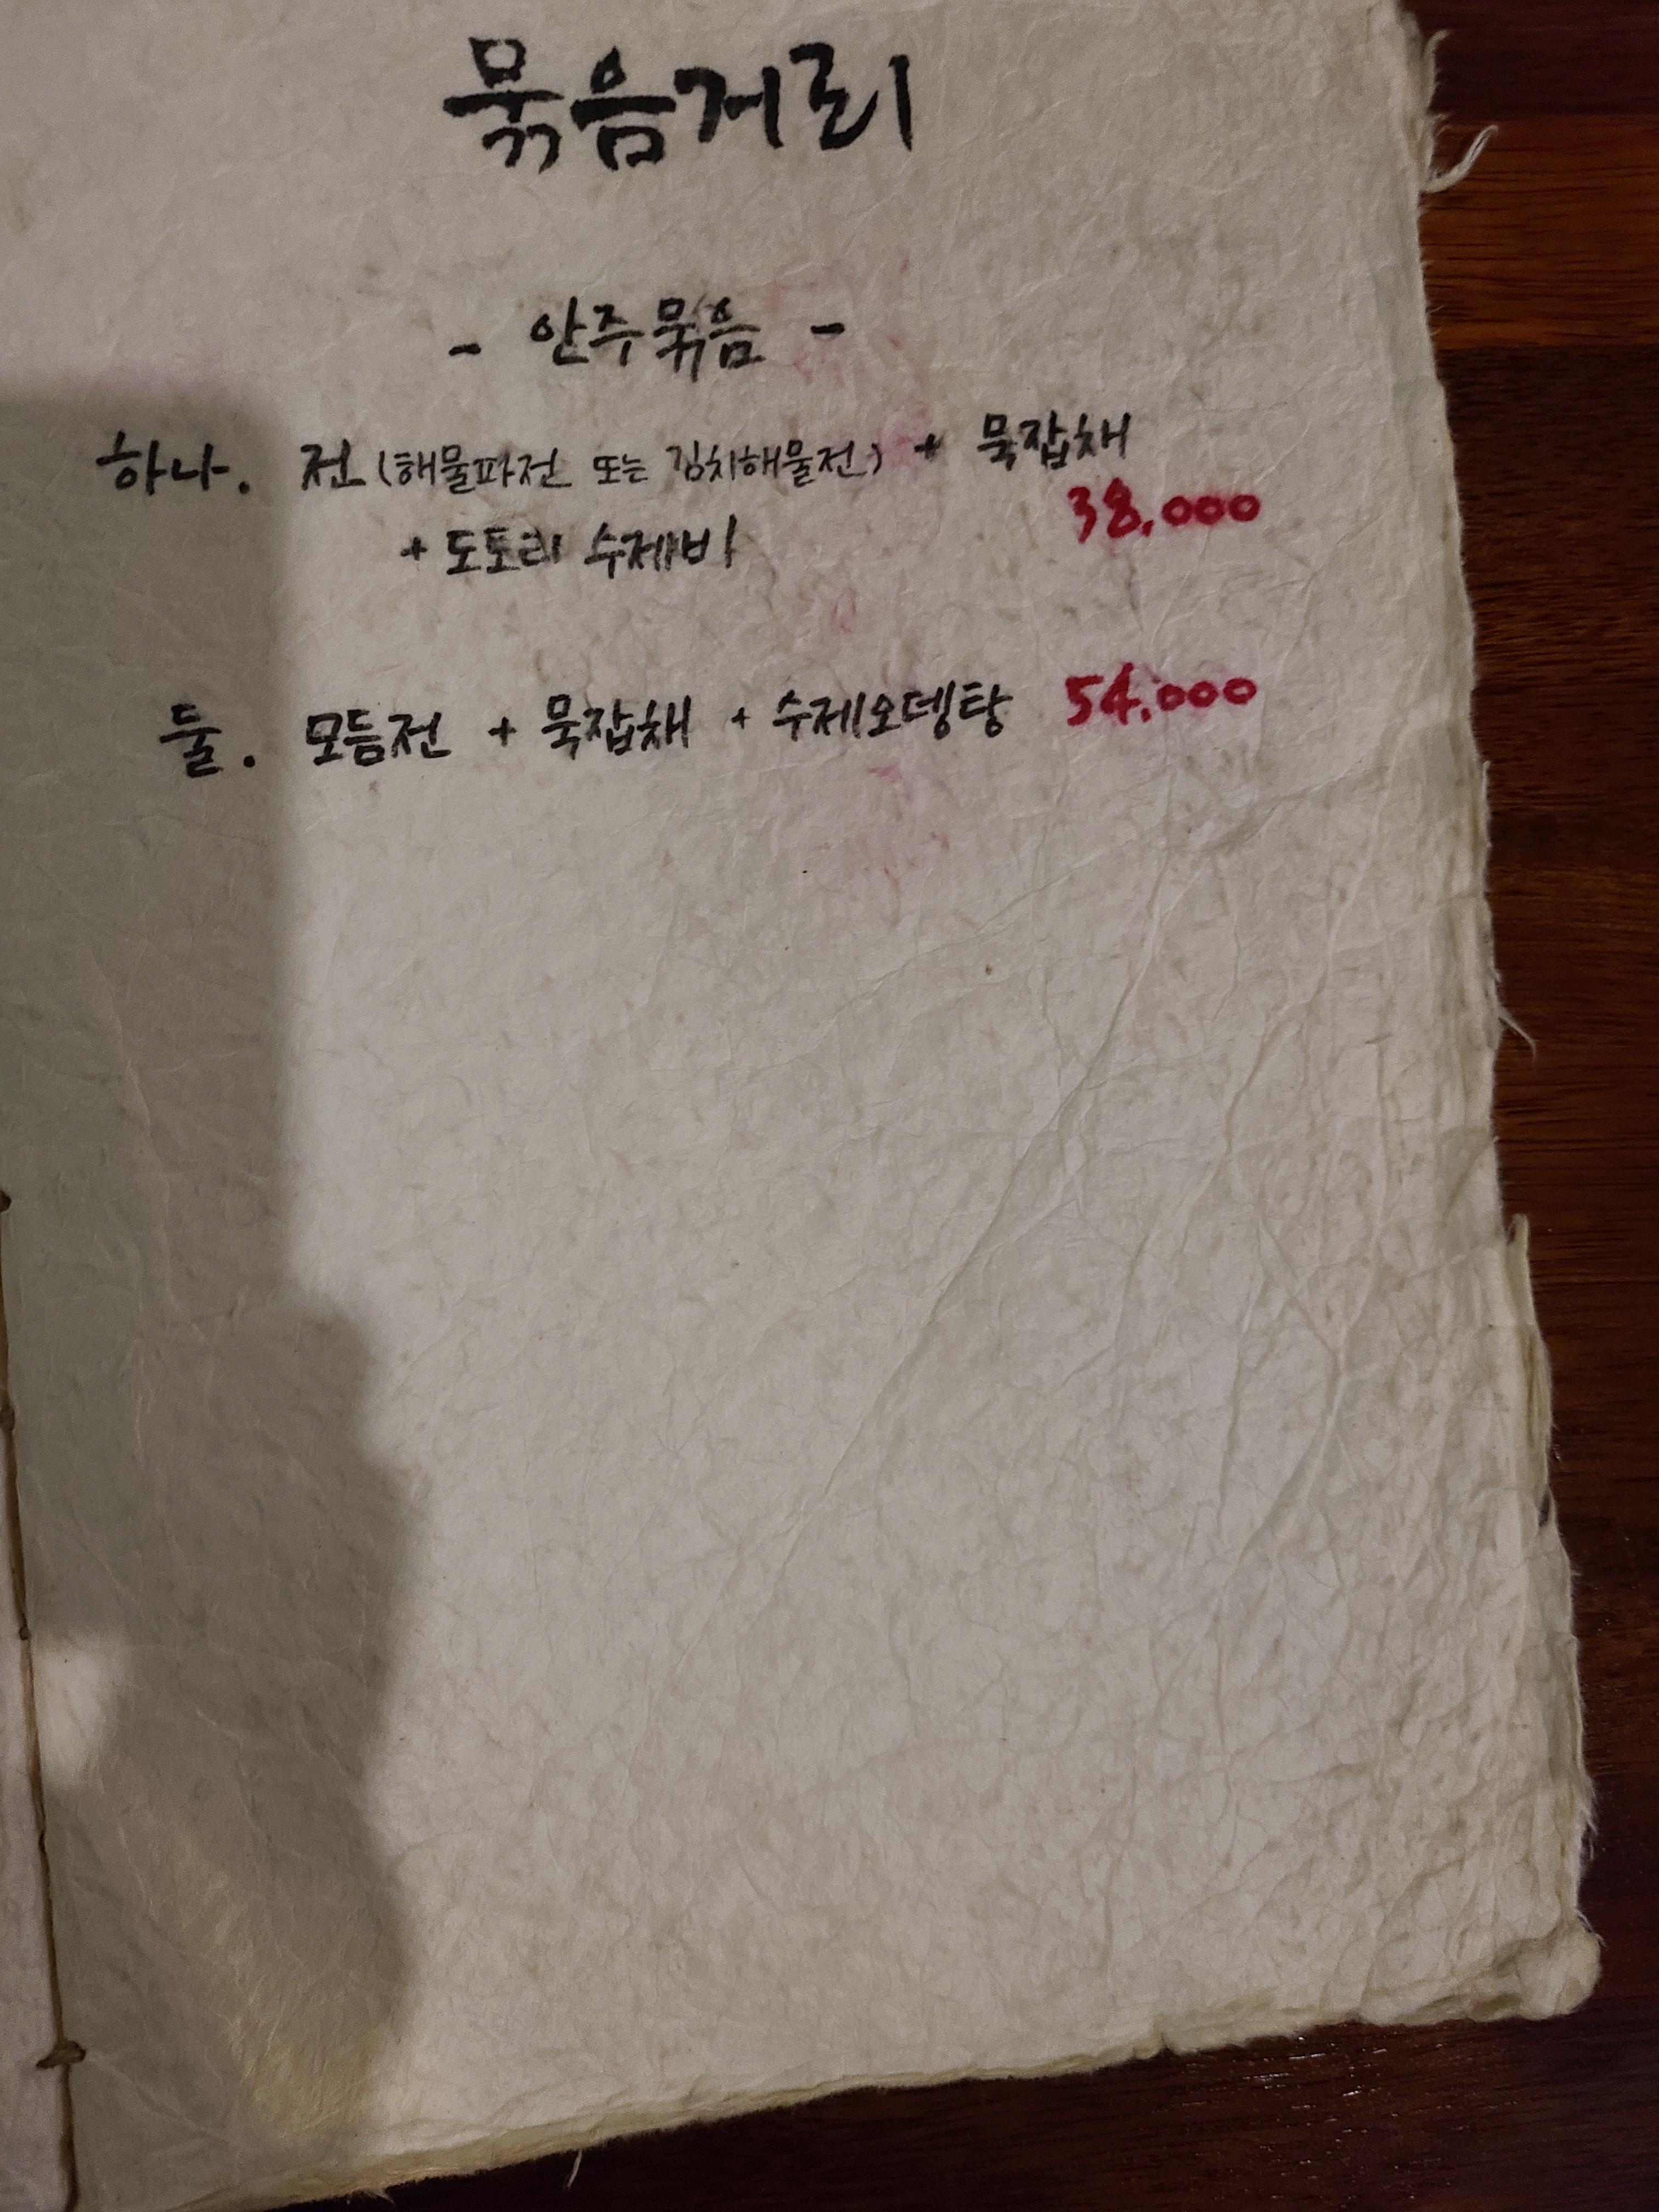 묶음거리
- 안주묶음 -
하나. 전(해물파전 또는 김치해물전) + 묵잡채
+ 도토리 수제비 38.000
둘. 모듬전 + 묵잡채 + 수제오뎅탕 54.000